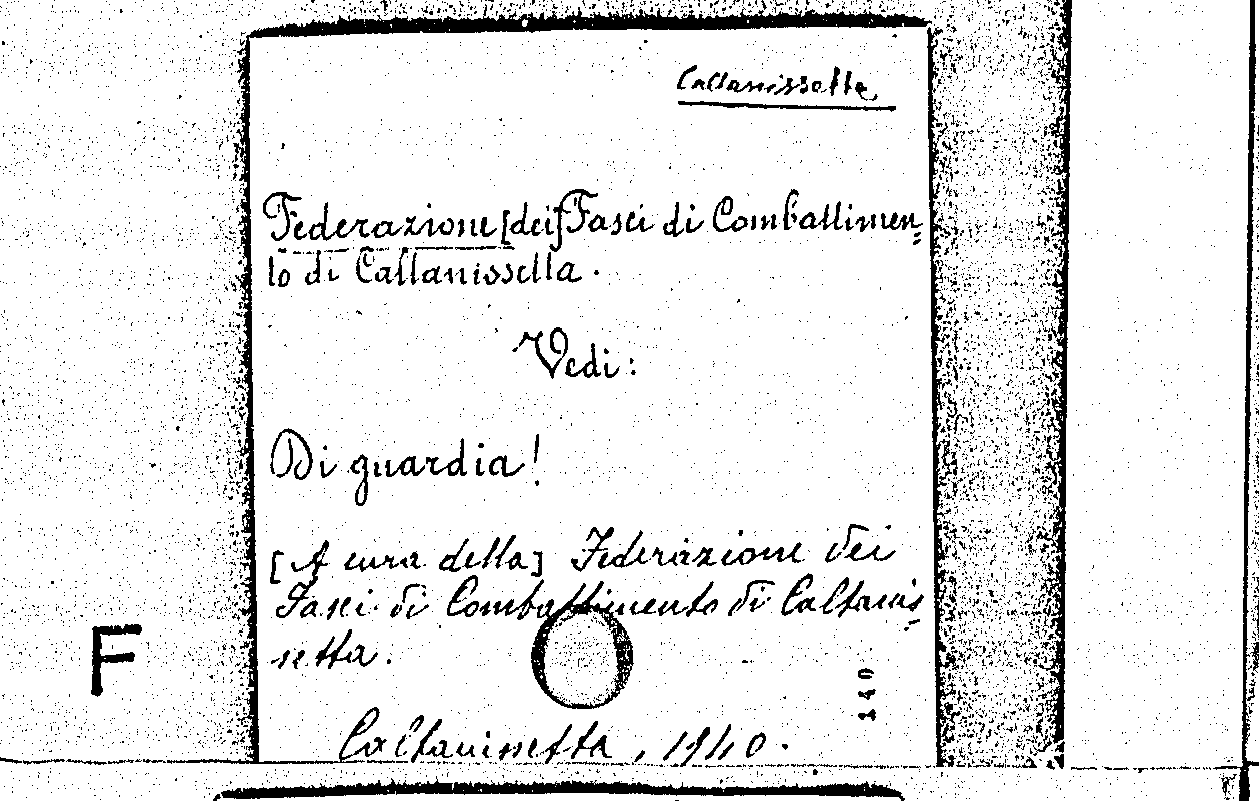 Caltanissetta
Federazione [dei] Fasci di Combattimen=
to di Caltanissetta.
Vedi:
Di guardia!
[A cura della] Federazione dei
Fasci di Combattimento di Caltanis=
setta.
F
140
Caltanissetta, 1940.